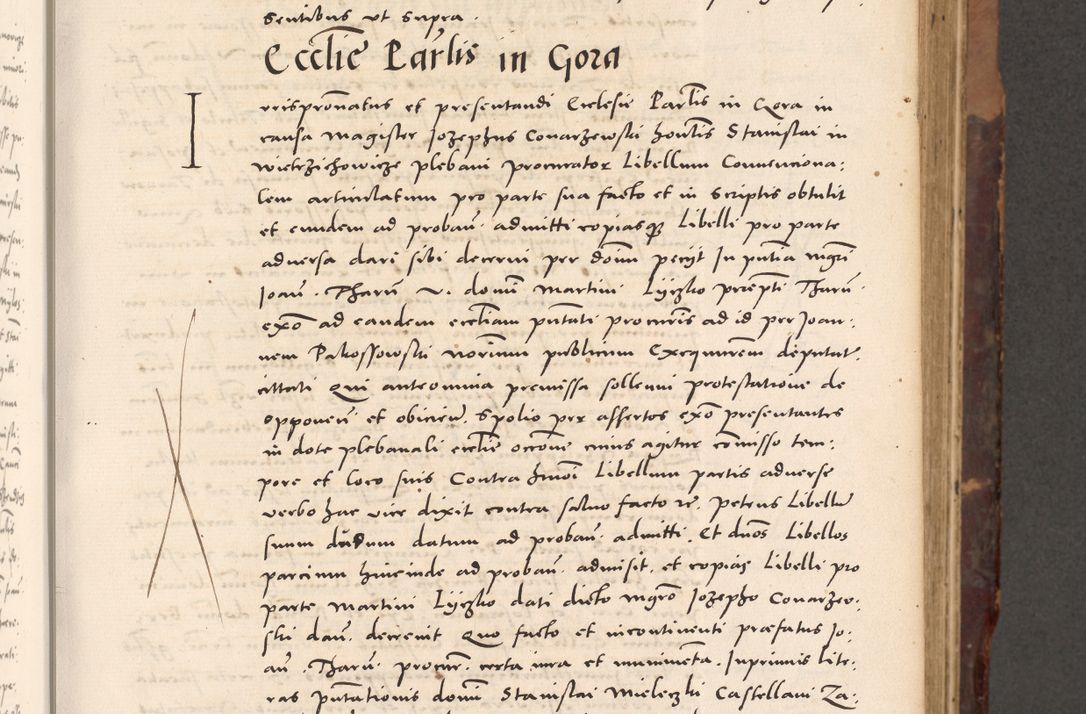 sentibus ut supra.
Ecclīe Parlis in Gora
Iurispronatus et presentandi Ecclesie Parlis in Gora in
causa Magister Iozephus Conarzewski honlis Stanislai in
wietrzichowicze plebani procurator Libellum Conuenciona:
lem articulatum pro parte sua facto et in scriptis obtulit
et eundem ad proban. admitti copiasq Libelli pro parte
adversa dari sibi decerni per dōm pecijt In pntia mgri
Ioan. Tharn. v. domi Martini Lijczko prcepti Tharn.
exō ad eandem eccliam pntati procuris ad id per Ioan:
nem Pakossowski norium publicum Exequurem deputat.
cittati Qui ante omnia premissa sollenni protestatione de
opponen et obicien. Spolio per assertos exō presentantes
in dote plebanali ecclie occone cuius agitur cōmisso tem:
pore et loco suis Contra hmōi Libellum partis adverse
verbo hac vice dixit contra salvo facto re. petens Libellū
suum dudum datum ad proban. admitti. Et duos Libellos
parcium hincinde ad proban. admisit. et copias Libelli pro
parte Martini Lijczko dati dicto mgrō Iozepho Conarzeo:
ski dan. decrevit Quo facto et incontinenti præfatus Io:
an. Tharn. procur. certa iura et munimēta. Inprimis Lite:
ras pntationis domi Stanislai Mieleczki Castellani Za: